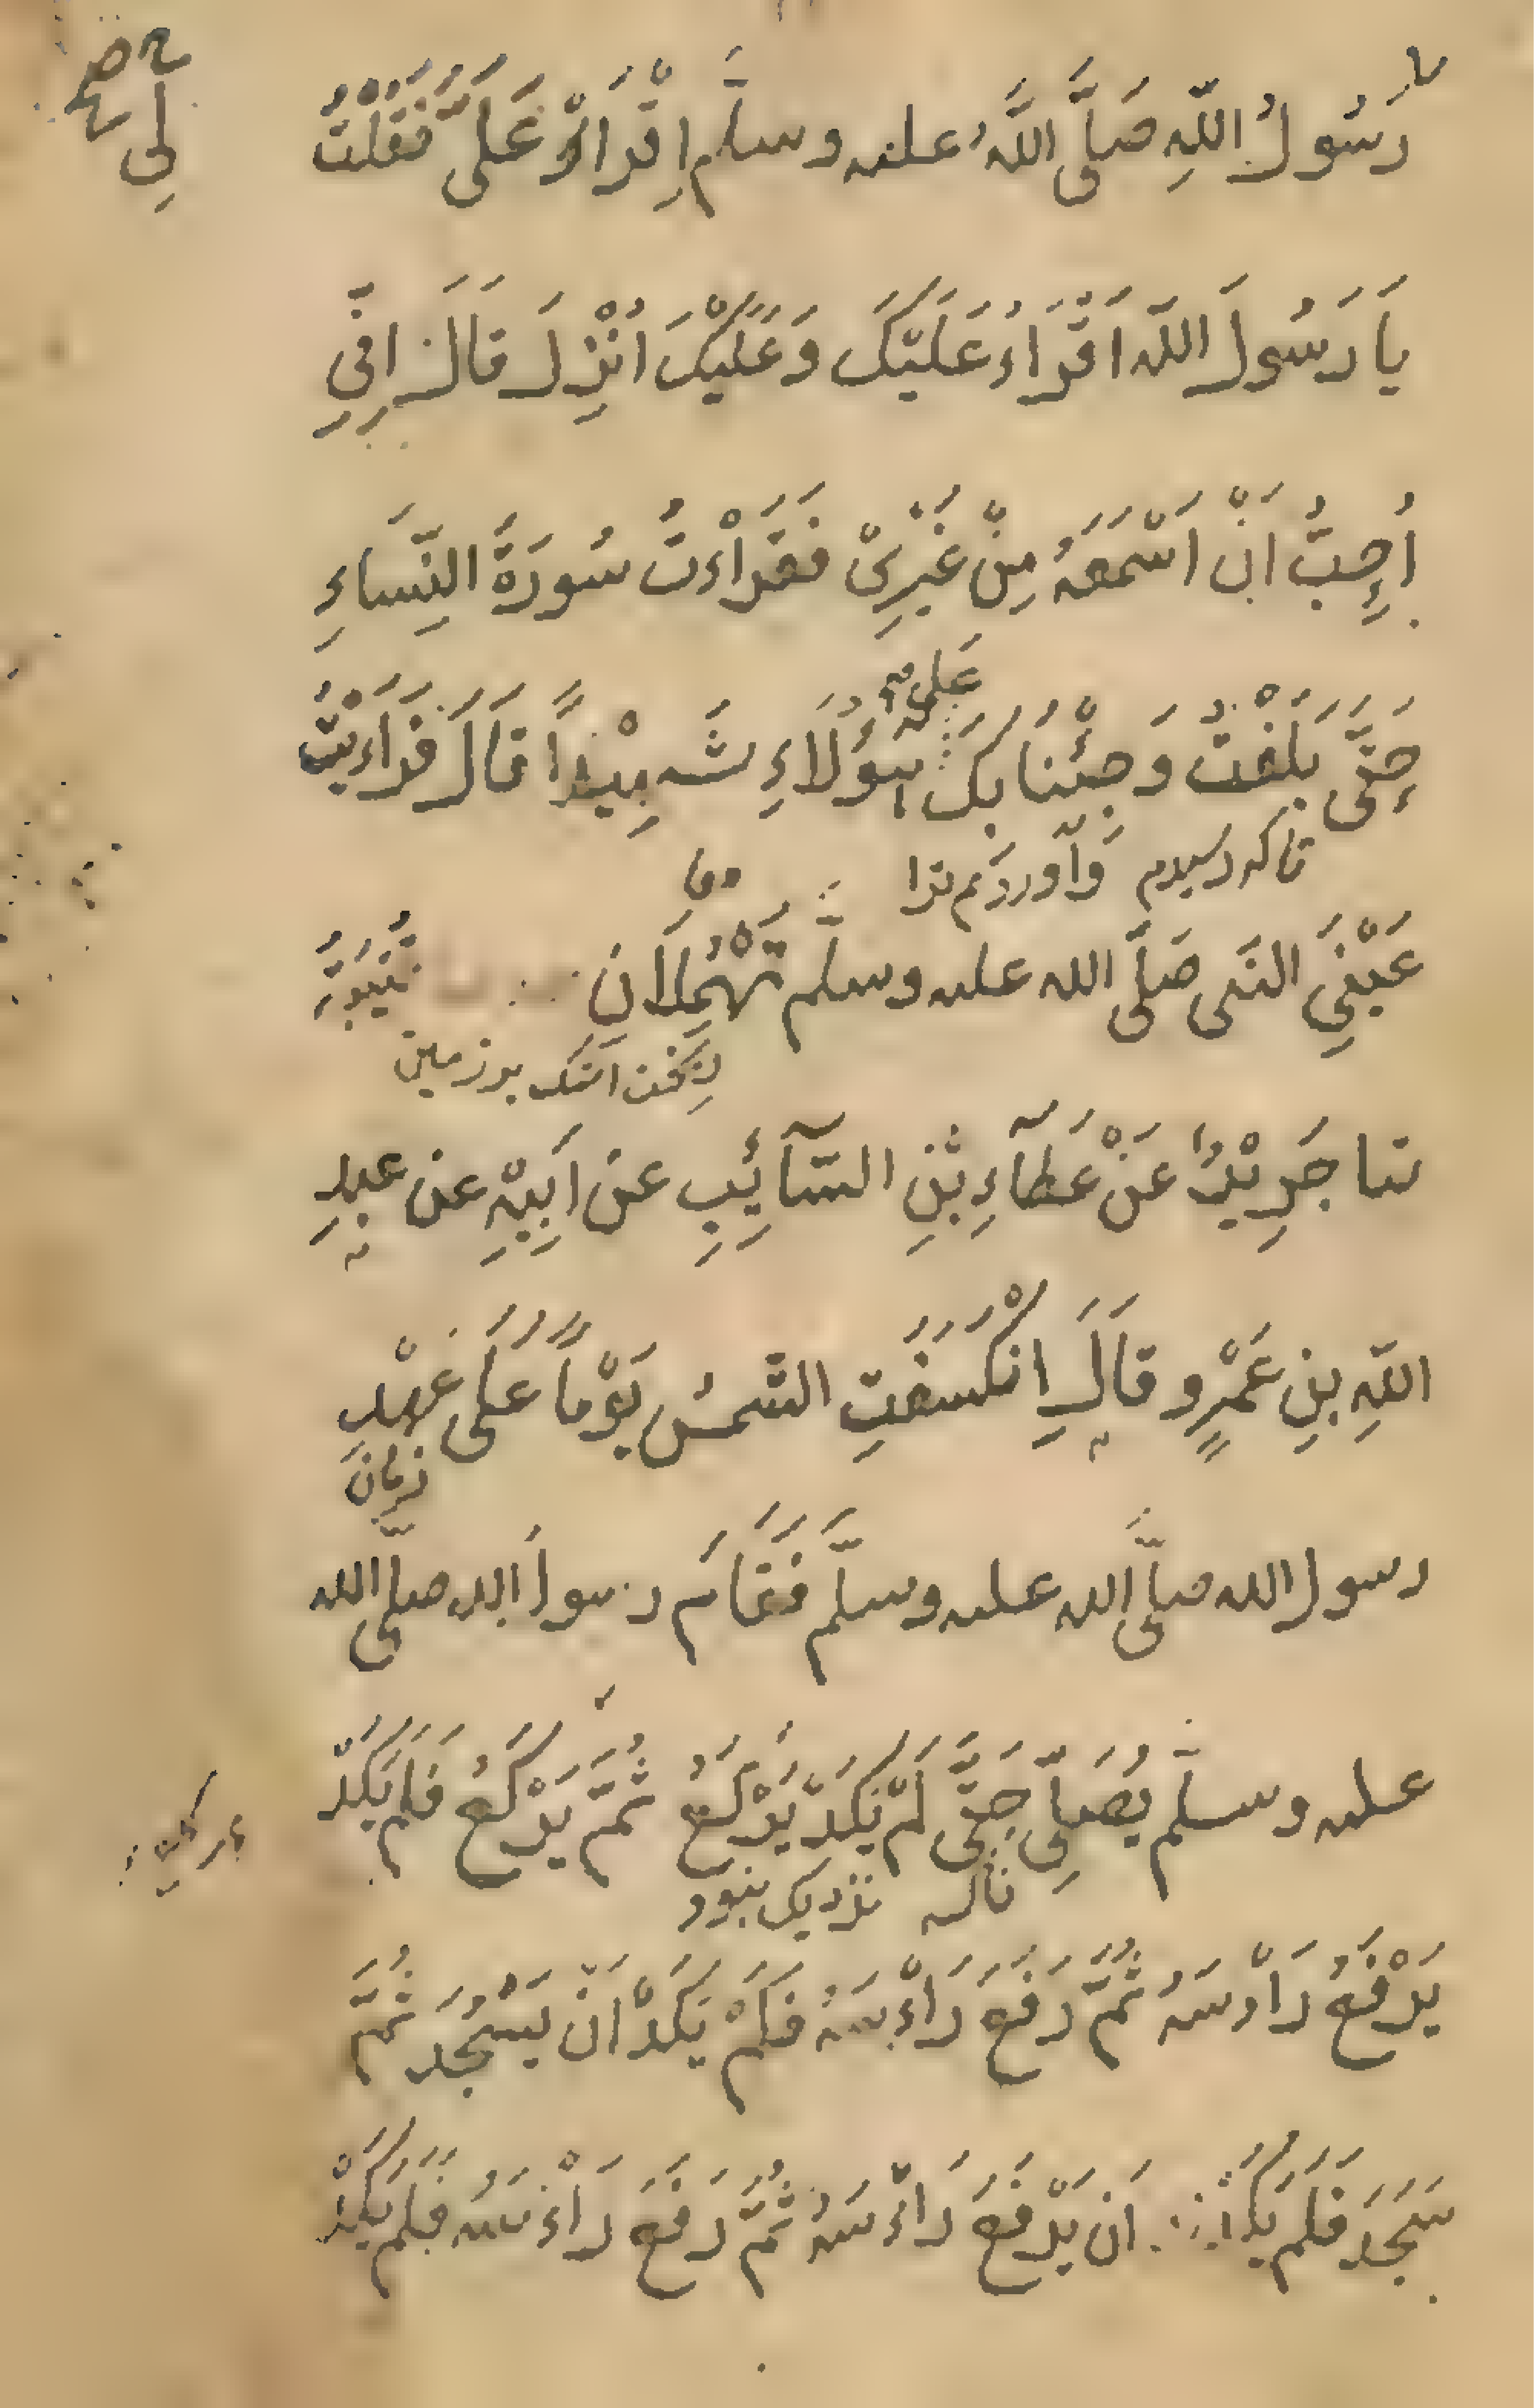 لي صح
رَسُولُ اللّهِ صَلَّى اللَّهُ عليه وسلَّم اِقْرَاْ عَلَىَّ فَقُلْتُ
يَا رَسُولَ اللّه اَقْرَاءُ عَلَيْكَ وَعَلَيْكَ اُنْزِلَ قَالَ اِنِّي
أُحِبُّ اَنْ اَسْمَعَهُ مِنْ غَيْرِىْ فَقَرَاْءتُ سُورَةَ النِّسَاءِ
عَلى
حَتَّى بَلَغْتُ وَجِئْنَا بِكَ هٰؤُلَاءِ شَهِيْداً قَالَ فَرَاَيْتُ
تاكه رسيدم وآوردَم ترا
عَيْنَيِ النَبى صَلَّى الله عليه وسلَّم تَهْمِلَانِ قُتَيْبَةُ
رِيختن اشك بر زمين
ثنا جَرِيْرٌ عَنْ عَطَآءِ بْنِ السَّآئِبِ عن اَبِيْهِ عن عبدِ
اللّهِ بنِ عَمْرٍو قَالَ اِنْكَسَفَتِ الشَّمسُ يَوْماً عَلَى عَهْدِ
زمان
رسول الله صلَّى الله عليه وسلَّم فَقَامَ رسولُ الله صلَّى الله
عليه وسلَّم يُصَلِّى حَتَّى لَمْ يَكَدْ يَرْكَعُ ثُمَّ يَرْكَعُ فَلَم يَكَدْ
تاكه نزديك نبود
يَرْفَعُ رَاْسَهُ ثُمَّ رَفَعَ رَاْسَهُ فَلَمْ يَكَدْ اَنْ يَسْجُدَ ثُمَّ
سَجَدَ فَلَمْ يَكَدْ اَن يَرْفَعَ رَاْسَهُ ثُمَّ رَفَعَ رَاْسَهُ فَلَم يَكَدْ